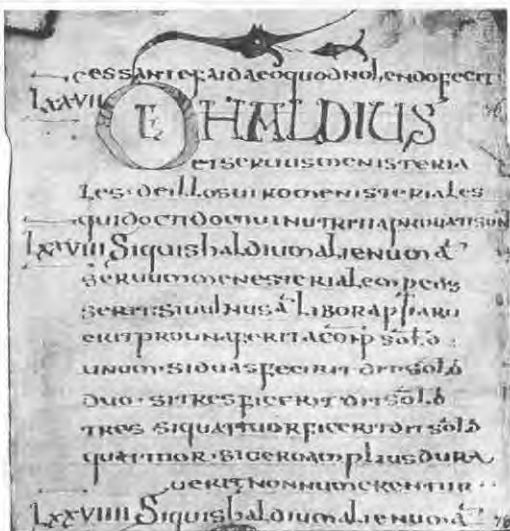 cessante faida eo quod nolendo fecit
LXXVII DE HALDIUS
et seruus menisteria
les · de illos uiro menisteriales
qui docti domui nutriti a prouati sun
LXXVIII Si quis haldium alienum a
seruum menesterialem percus
serit · si uulnus a libor apparu
erit pro una ferita conp sold
unum · si duas fecirit det sold
duo · si tres ficerit det sold
tres si quattuor ficerit det sold
quattuor · si uero amplius dura
uerit non numerentur
LXXVIIII Si quis haldium alienum a